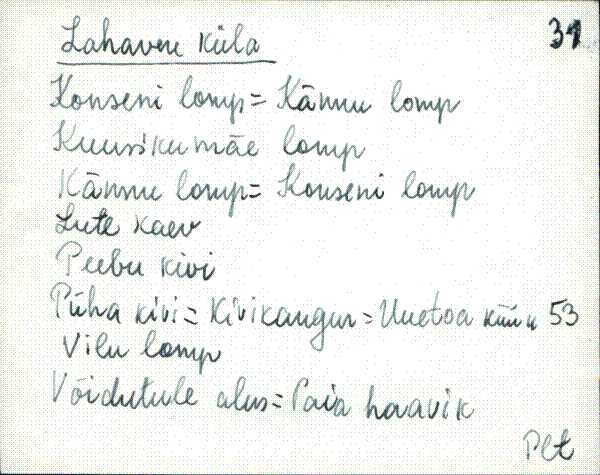 Lahavere küla 31
Konseni lomp = Kännu lomp
Kuusikumäe lomp
Kännu lomp = Konseni lomp
Lute kaev
Peebu kivi
Püha kivi = Kivikangur = Uuetoa 53
Vilu lomp
Võidutule alus = Paia haavik
Plt